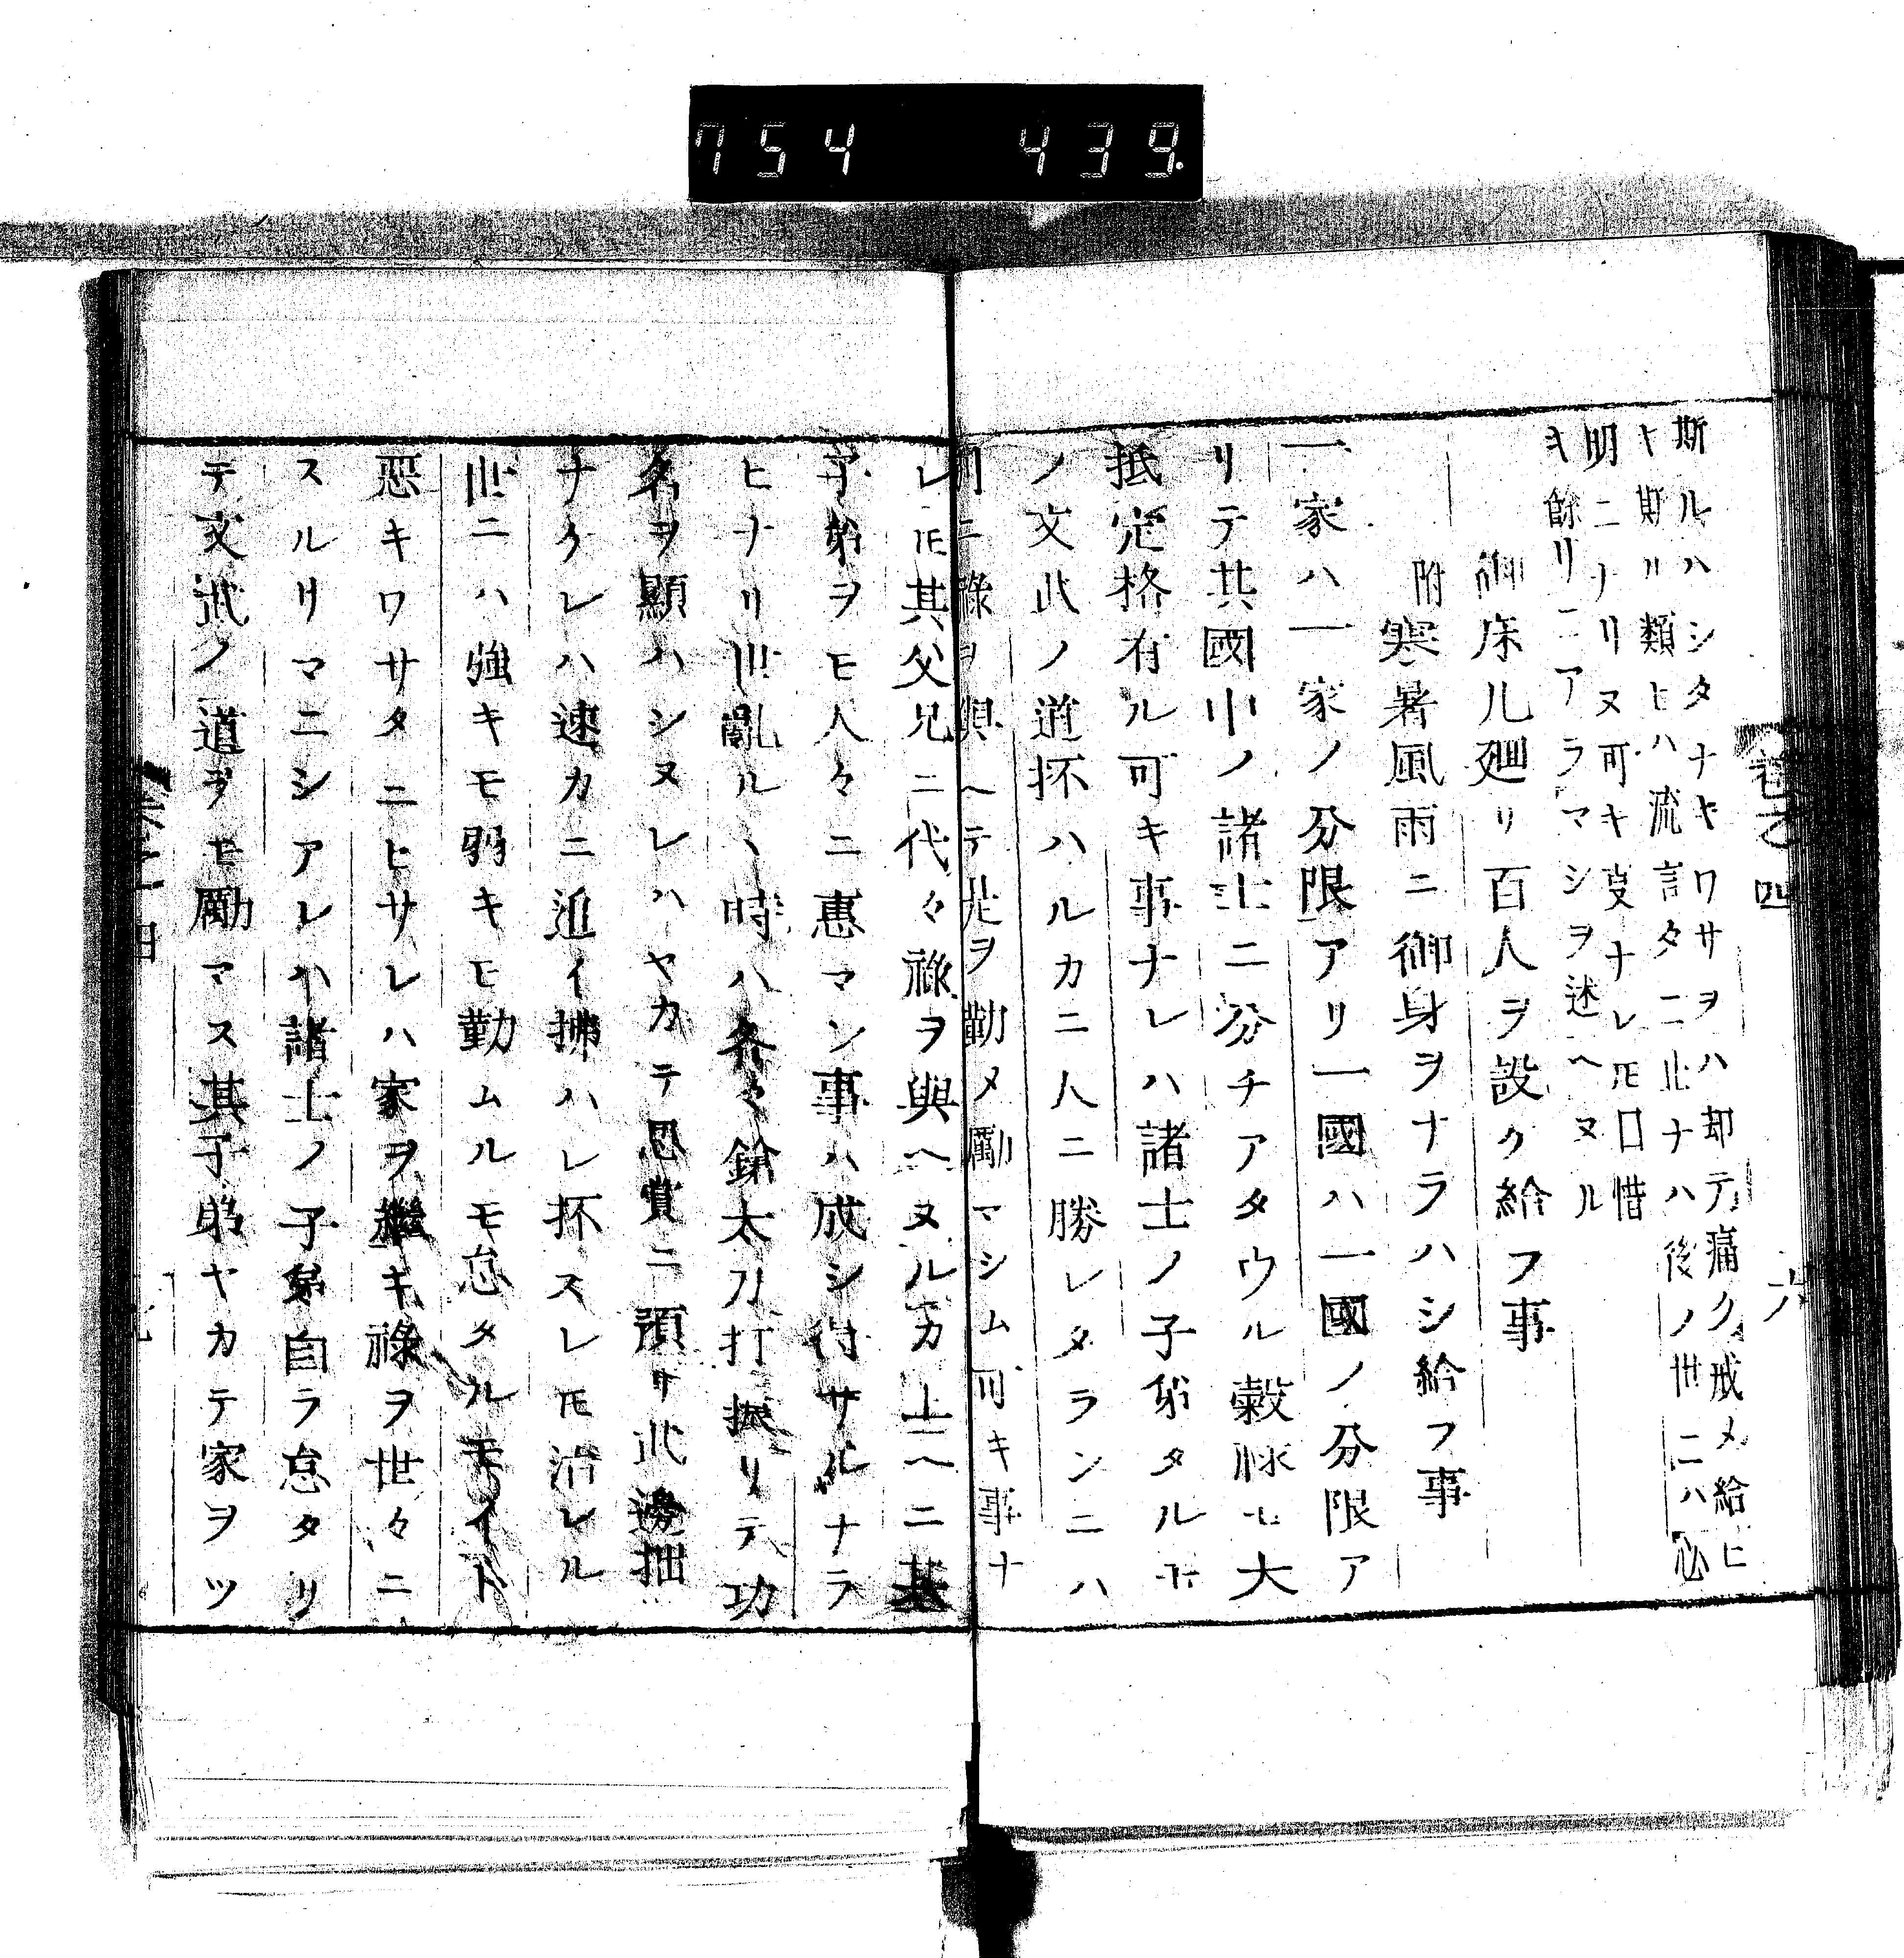 754 439
卷之四 六
斯ルハシタナキワサヲハ却テ痛ク戒メ給ヒ
キ斯ル類ヒハ流言タニ止ナハ後ノ世ニハ必
明ニナリヌ可キ叓ナレ𪜈口惜
キ餘リニアラマシヲ述ヘヌル
御床几廻リ百人ヲ設ク給フ事
附寒暑風雨ニ御身ヲナラハシ給フ事
一家ハ一家ノ分限アリ一國ハ一國ノ分限ア
リテ其國中ノ諸士ニ分チアタウル穀祿モ大
抵定格有ル可キ事ナレハ諸士ノ子弟タルモ
ノ文武ノ道抔ハルカニ人ニ勝レタランニハ
別ニ祿ヲ與ヘテ是ヲ勸メ勵マシム可キ事ナ
レ𪜈其父兄ニ代々祿ヲ與ヘヌルカ上ヘニ其
子弟ヲモ人々ニ惠マン事ハ成シ得サルナラ
ヒナリ世亂ルヽ時ハ各々鎗太刀打振リテ功
名ヲ顯ハシヌレハヤカテ恩賞ニ預リ武邊拙
ナクレハ速カニ追イ拂ハレ抔スレ𪜈治レル
世ニハ強キモ弱キモ勤ムルモ怠タルモイト
惡キワサタニヒサレハ家ヲ繼キ祿ヲ世々ニ
スルリマニシアレハ諸士ノ子弟自ラ怠タリ
テ文武ノ道ヲモ勵マス其子弟ヤカテ家ヲツ